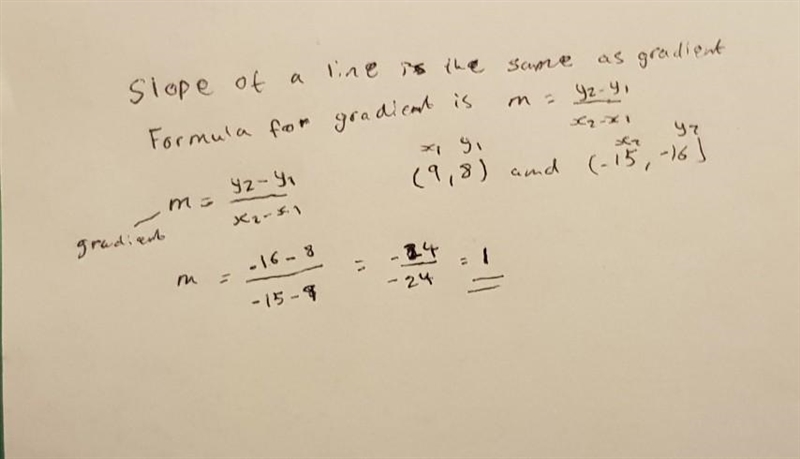 Slope of a line is the same as gradient
Formula for gradient is m = y2-y1 / x2-x1
x1 y1 x2 y2
(9,8) and (-15,-16)
gradient m = y2-y1 / x2-x1
m = -16-8 / -15-9 = -24 / -24 = 1